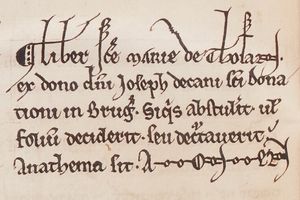 Liber sce marie de Thosan.
ex dono dni Joseph decani sci dona
tioni in Brug. Siqis abstulit. ul
foliū deciderit. seu dectauerit.
Anathema sit. A